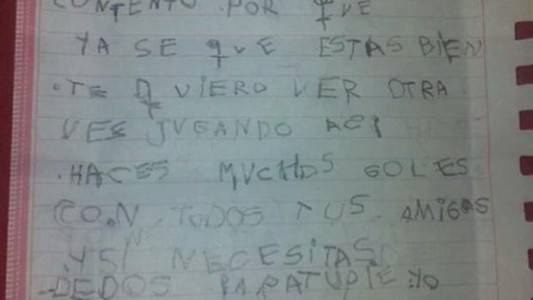 CONTENTO POR QVE
YA SE QVE ESTAS BIEN
.TE QVIERO VER OTRA
VES JVGANDO ACI
.HACES MVCHOS GOLES
CON TODOS TUS AMIGOS
.Y SI NECESITAS
DEDOS PARA TU PIE YO